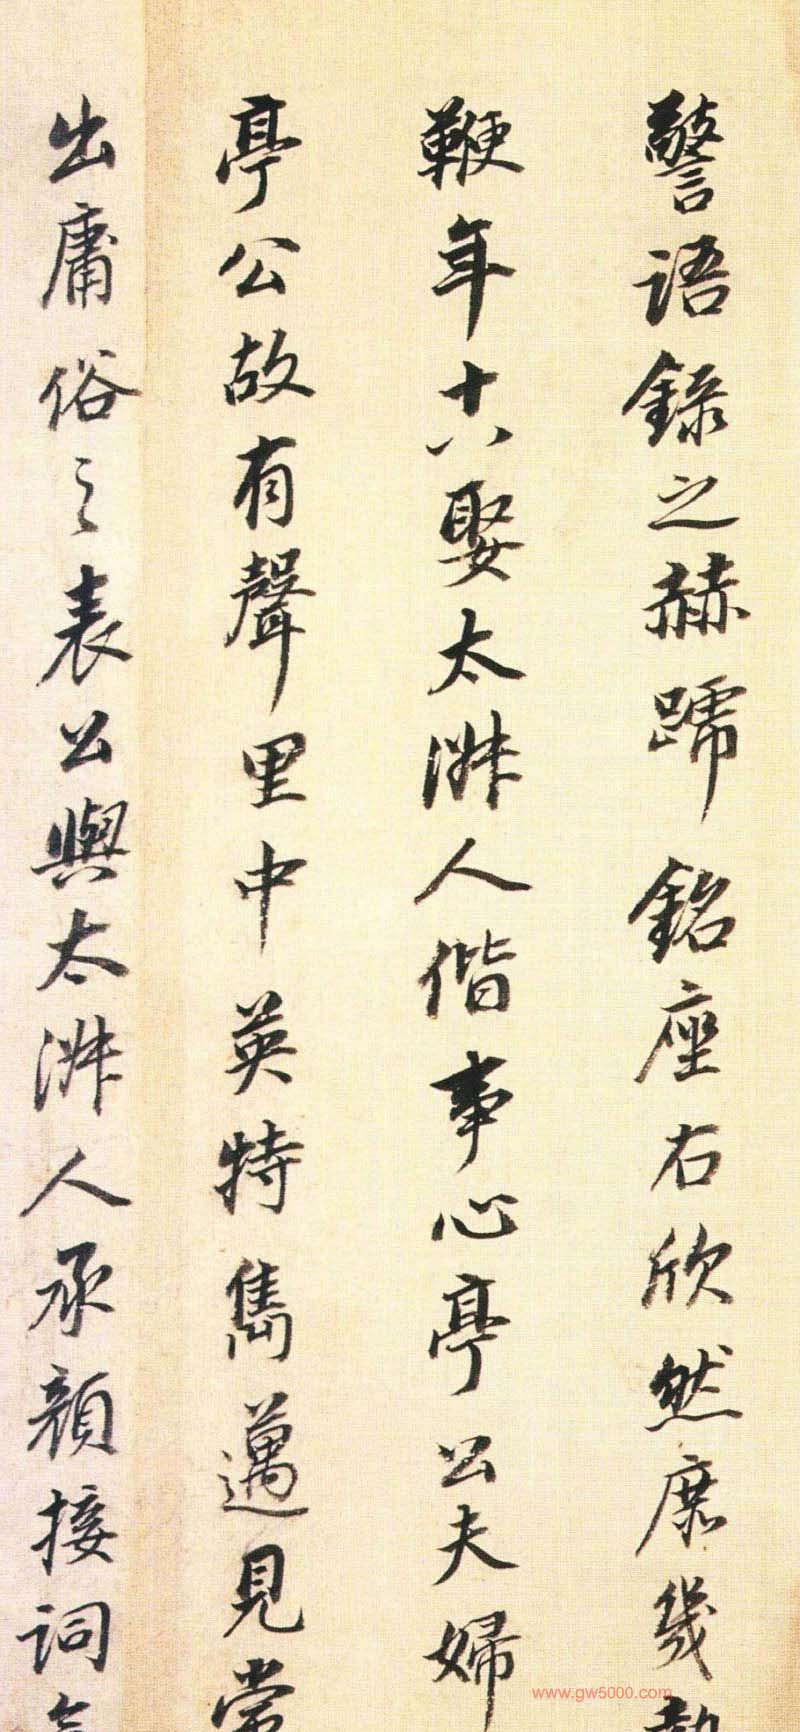 警語錄之赫蹏銘座右欣然庶幾執
鞭年十六娶太淑人偕事心亭公夫婦
亭公故有聲里中英特雋邁見常
出庸俗之表公與太淑人承顏接詞
www.gw5000.com